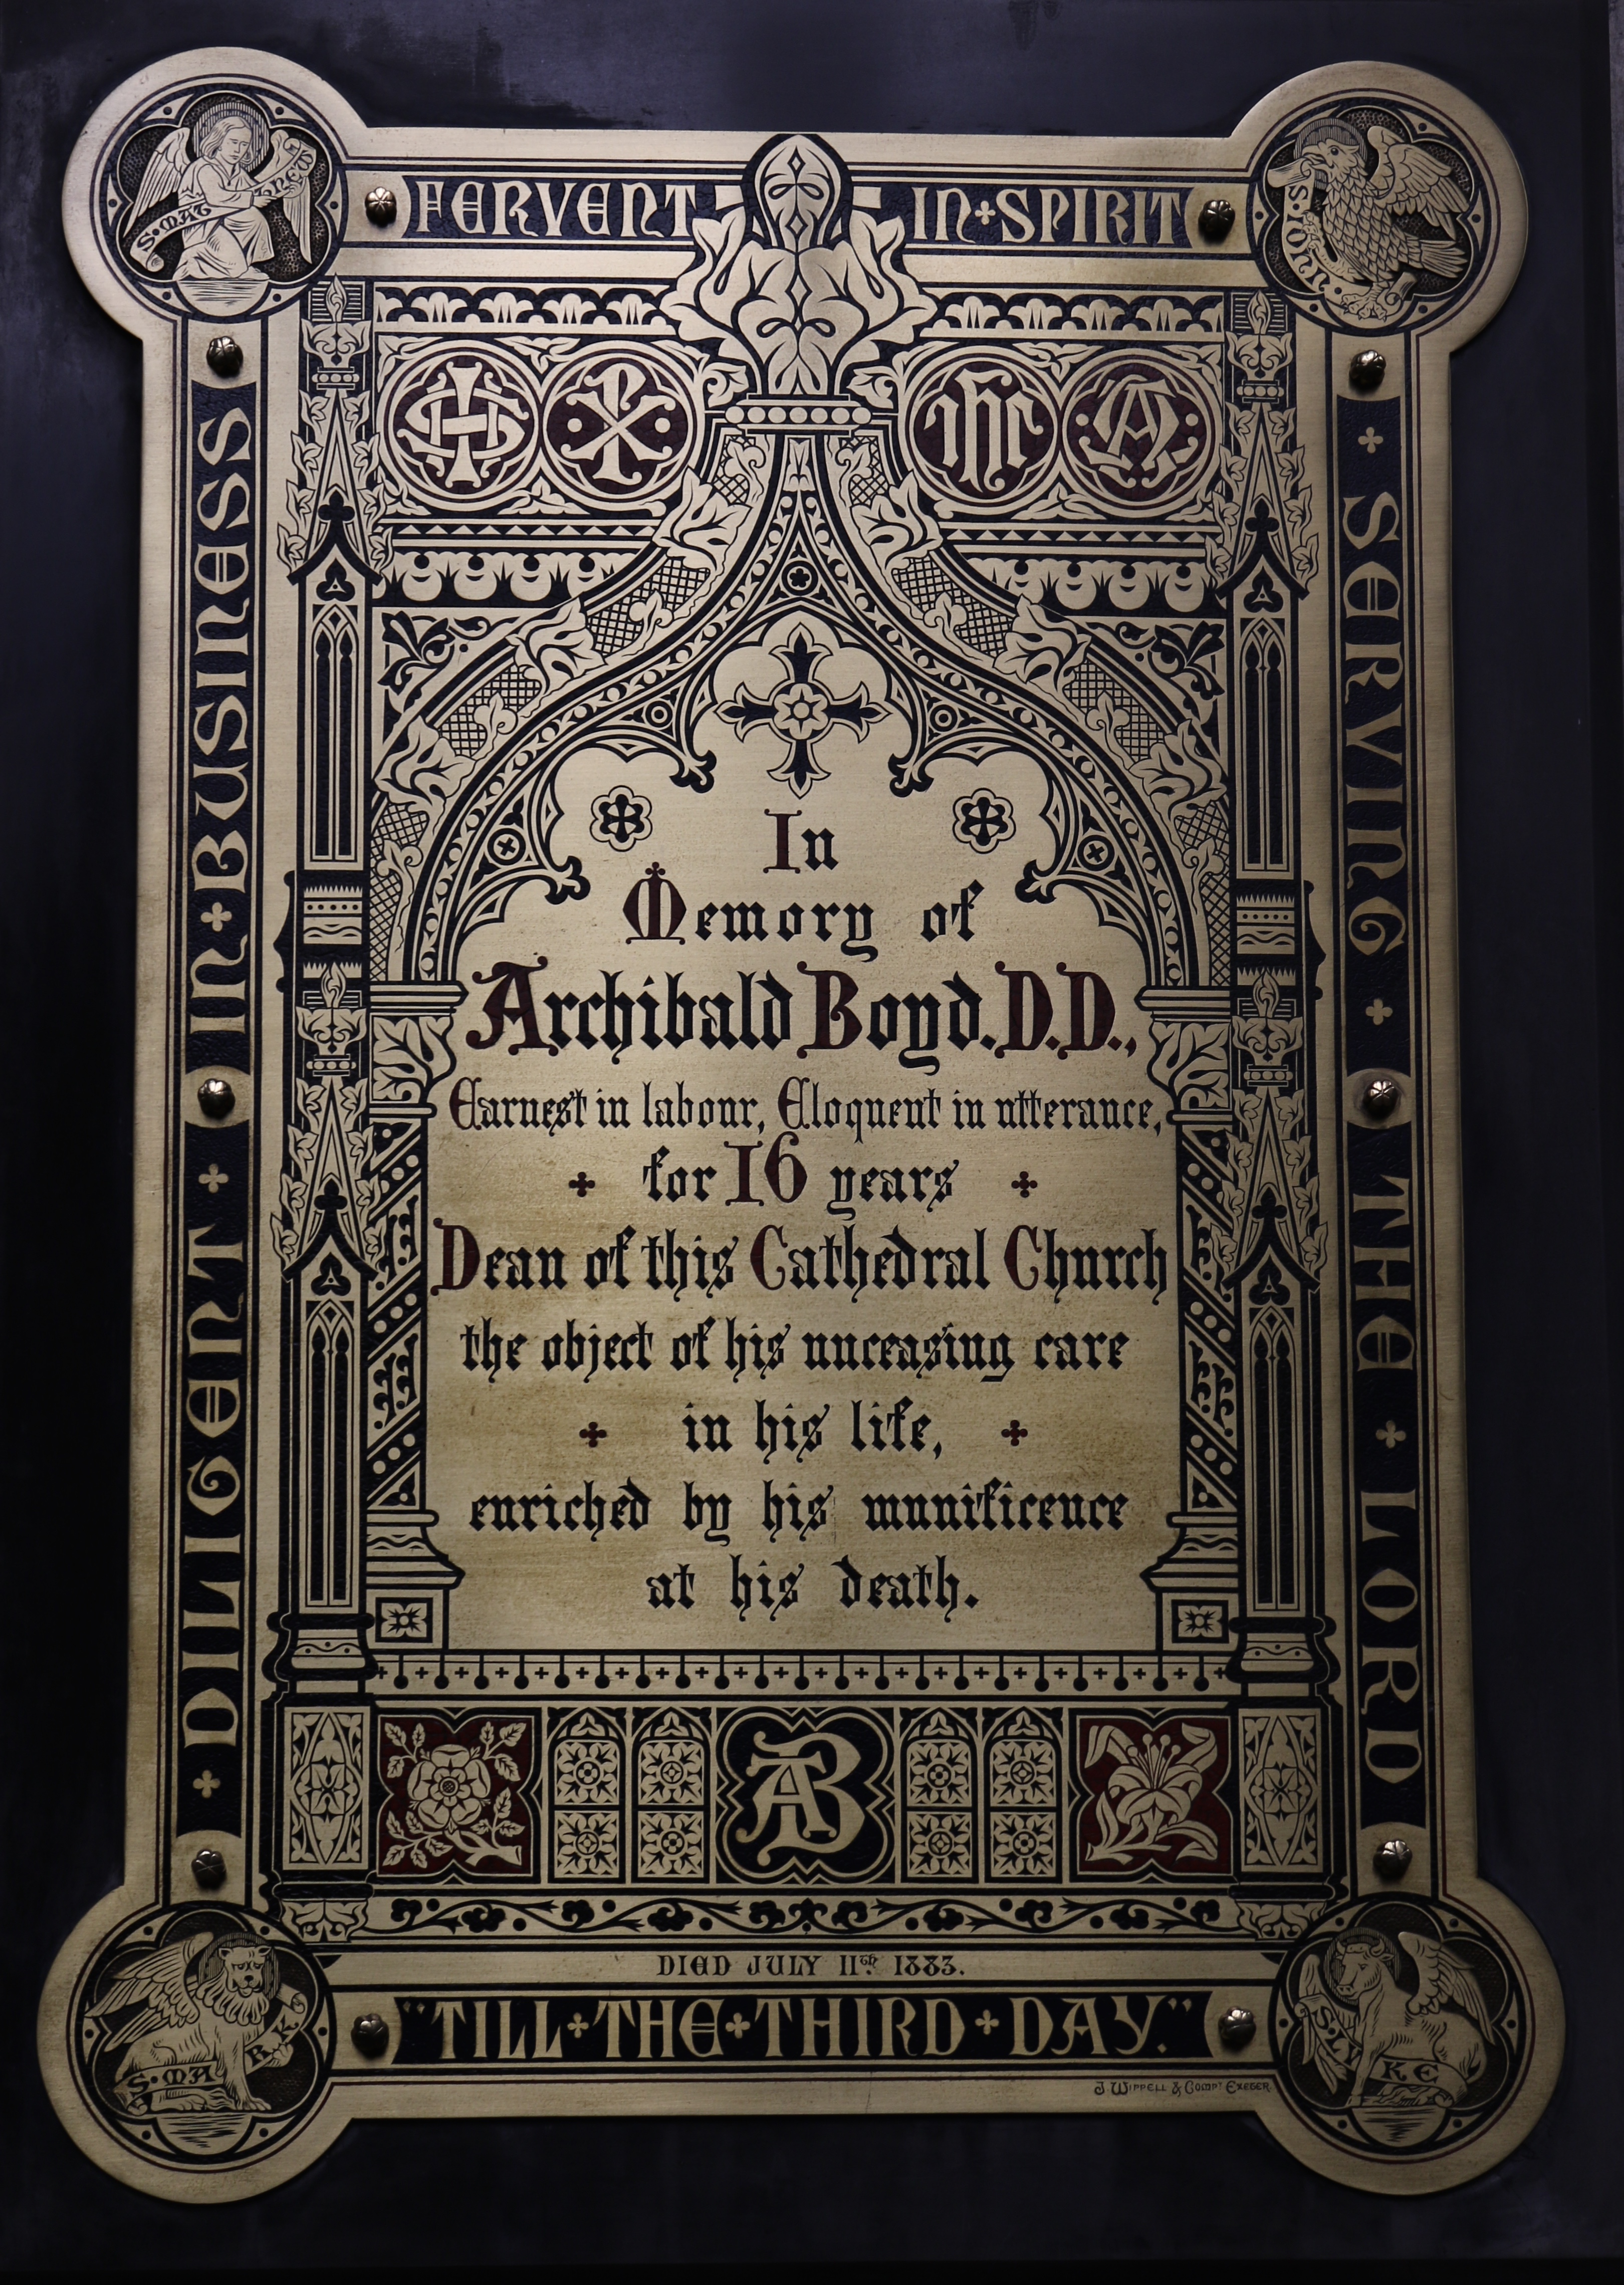 S. MATTHEW
FERVENT IN + SPIRIT
S. JOHN
+ DILIGENT + IN + BUSINESS
IHC
In
Memory of
Archibald Boyd. D.D.,
Earnest in labour, Eloquent in utterance,
+ for 16 years +
Dean of this Cathedral Church
the object of his unceasing care
+ in his life, +
enriched by his munificence
at his death.
+ SERVING + THE + LORD
AB
DIED JULY 11th 1883.
"TILL + THE + THIRD + DAY."
S. MARK
S. LUKE
J. WIPPELL & COMPY EXETER.